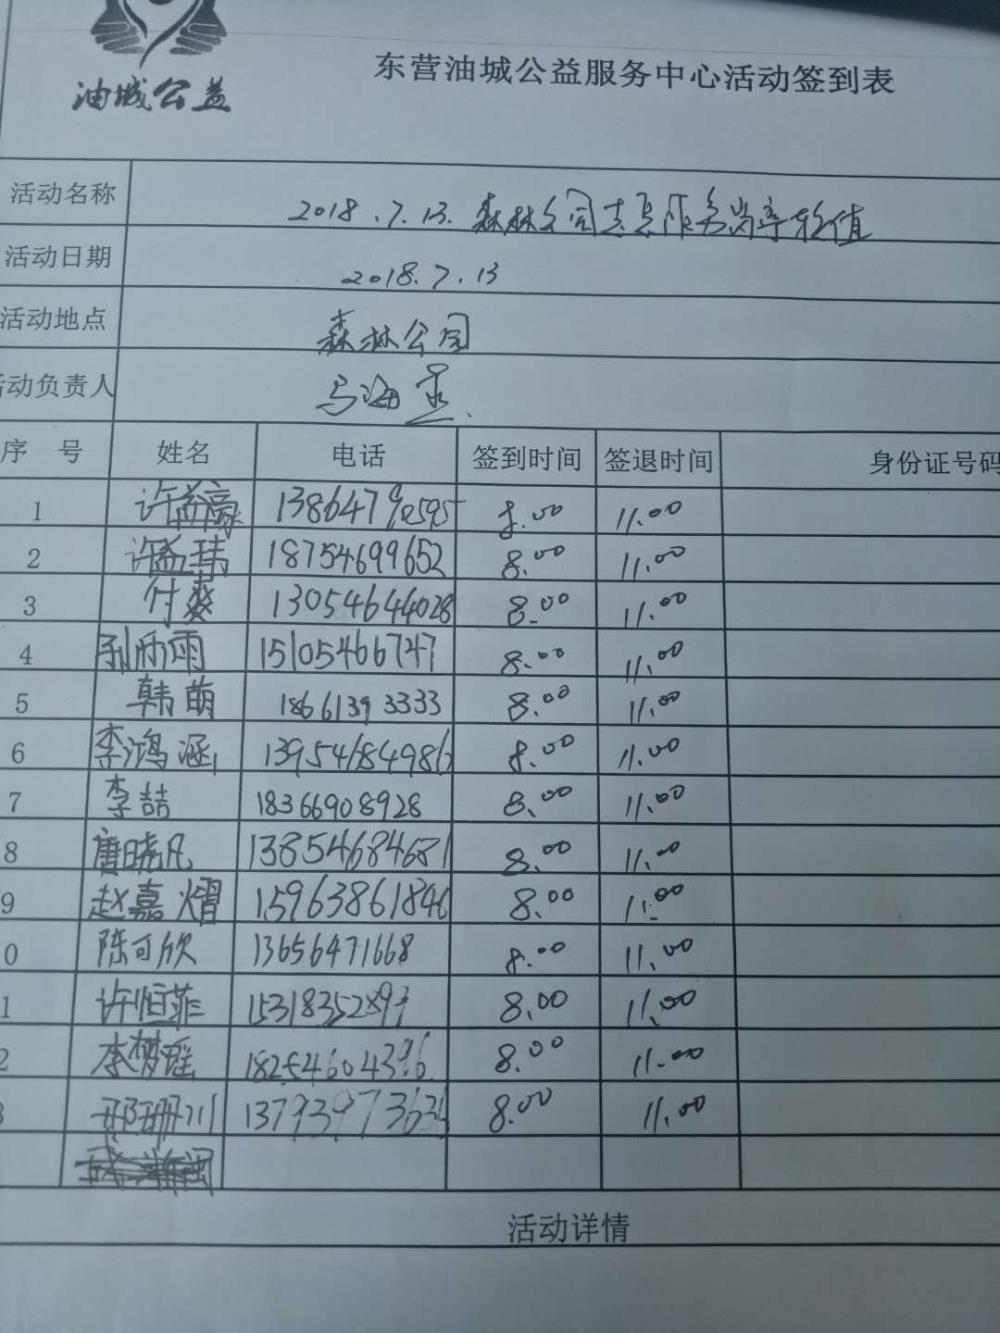 油城公益
东营油城公益服务中心活动签到表
活动名称 2018.7.13. 森林公园志愿服务岗亭执值
活动日期 2018.7.13
活动地点 森林公园
活动负责人 马海
序 号 姓名 电话 签到时间 签退时间 身份证号码
1 许益豪 13864790595 8.00 11.00
2 许益玮 18754699652 8.00 11.00
3 付爽 13054644028 8.00 11.00
4 雨 15105466747 8.00 11.00
5 韩萌 18661393333 8.00 11.00
6 李鸿涵 13954684986 8.00 11.00
7 李喆 18366908928 8.00 11.00
8 唐晓凡 13854684681 8.00 11.00
9 赵嘉熠 15963861846 8.00 11.00
0 陈可欣 13656471668 8.00 11.00
1 许恒菲 15318352897 8.00 11.00
2 李梦瑶 18254604396 8.00 11.00
3 邢珊川 8.00 11.00
活动详情